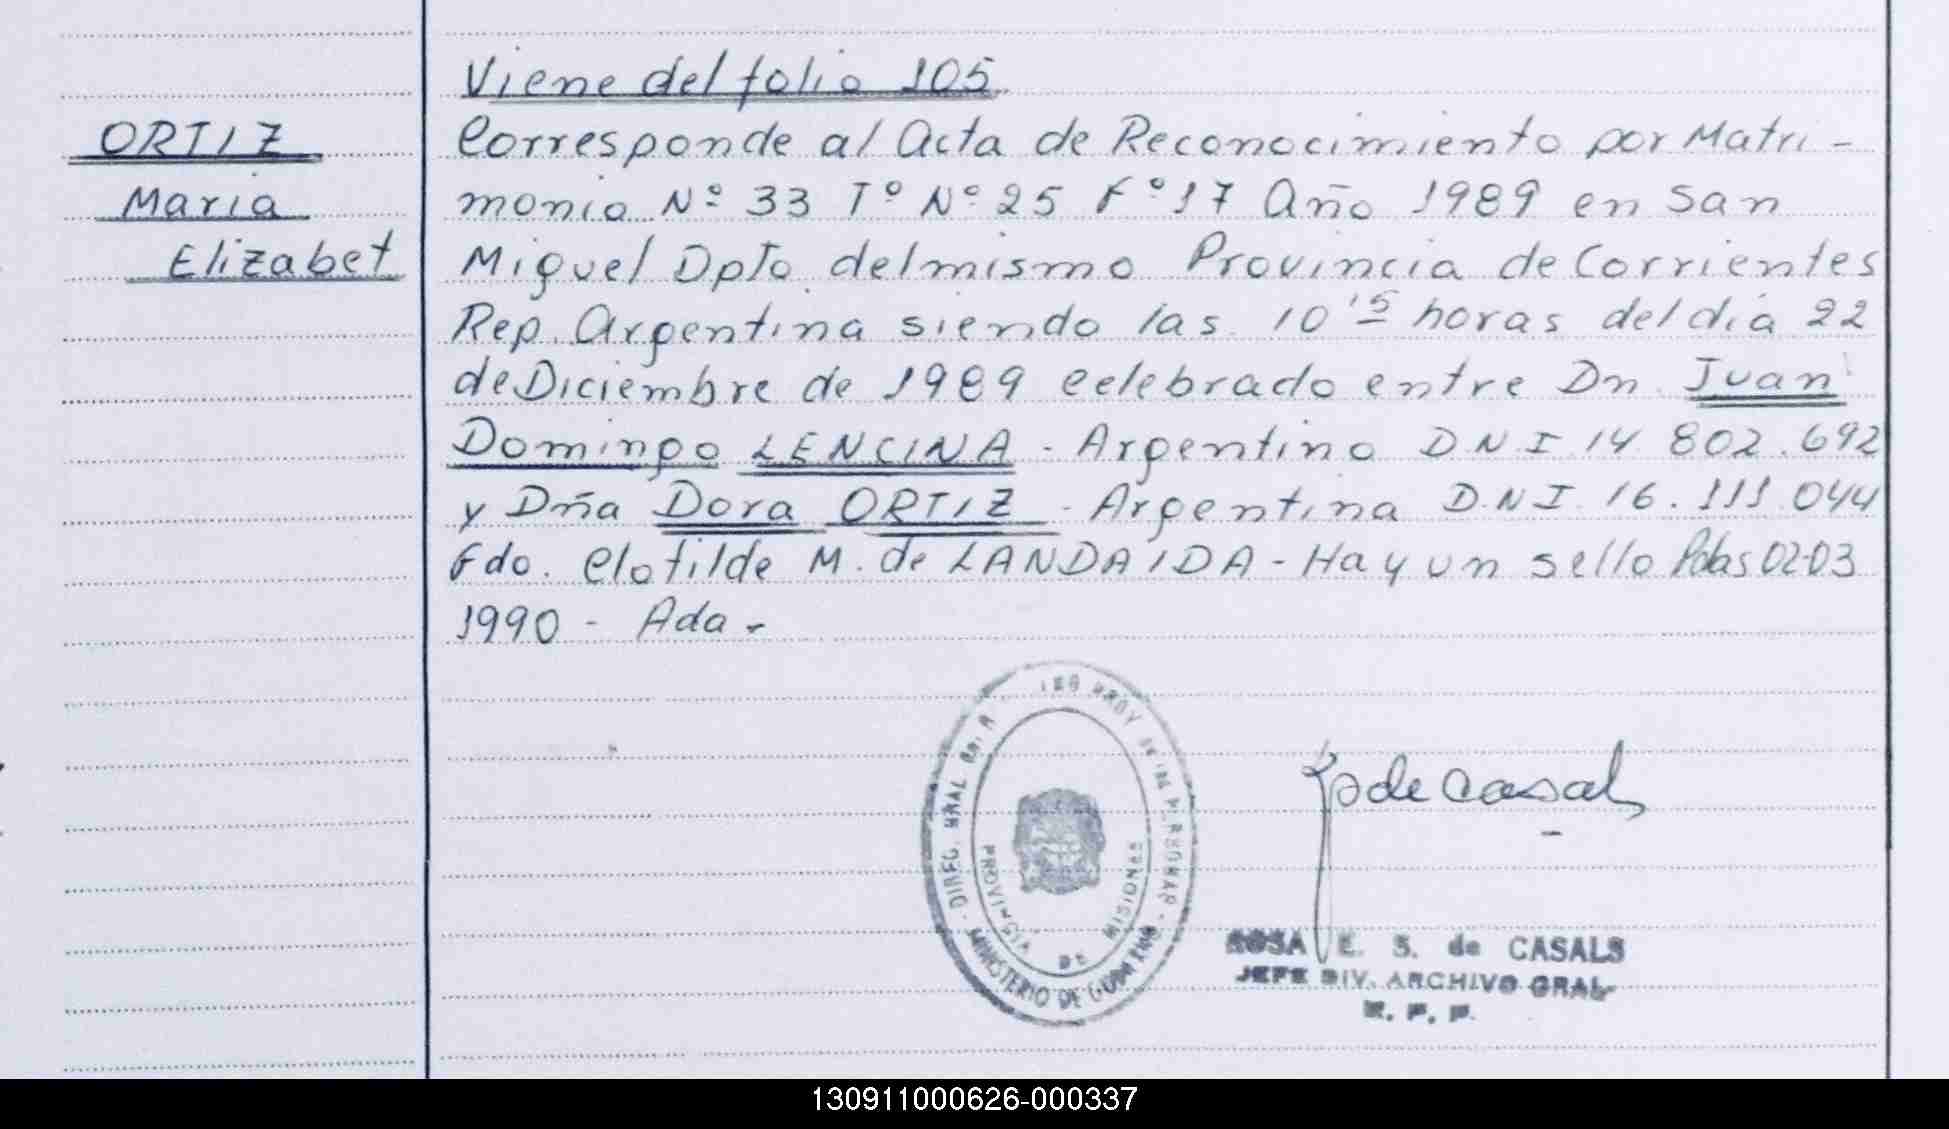 Viene del folio 105
ORTIZ
Maria
Elizabet
Corresponde al Acta de Reconocimiento por Matri-
monio Nº 33 Tº Nº 25 Fº 17 Año 1989 en San
Miguel Dpto del mismo Provincia de Corrientes
Rep. Argentina siendo las 10 15 horas del día 22
de Diciembre de 1989 celebrado entre Dn Juan
Domingo LENCINA - Argentino D N I 14 802.692
y Dña Dora ORTIZ - Argentina D.N.I. 16.111.044
Fdo. Clotilde M. de LANDAIDA - Hay un sello Pdas 02-03
1990 - Ada -
DIREC. GRAL
DE LAS PERSONAS
MINISTERIO DE GOBIERNO
PROVINCIA DE MISIONES
de Casals
ROSA E. S. de CASALS
JEFE DIV. ARCHIVO GRAL
R. P. P.
130911000626-000337